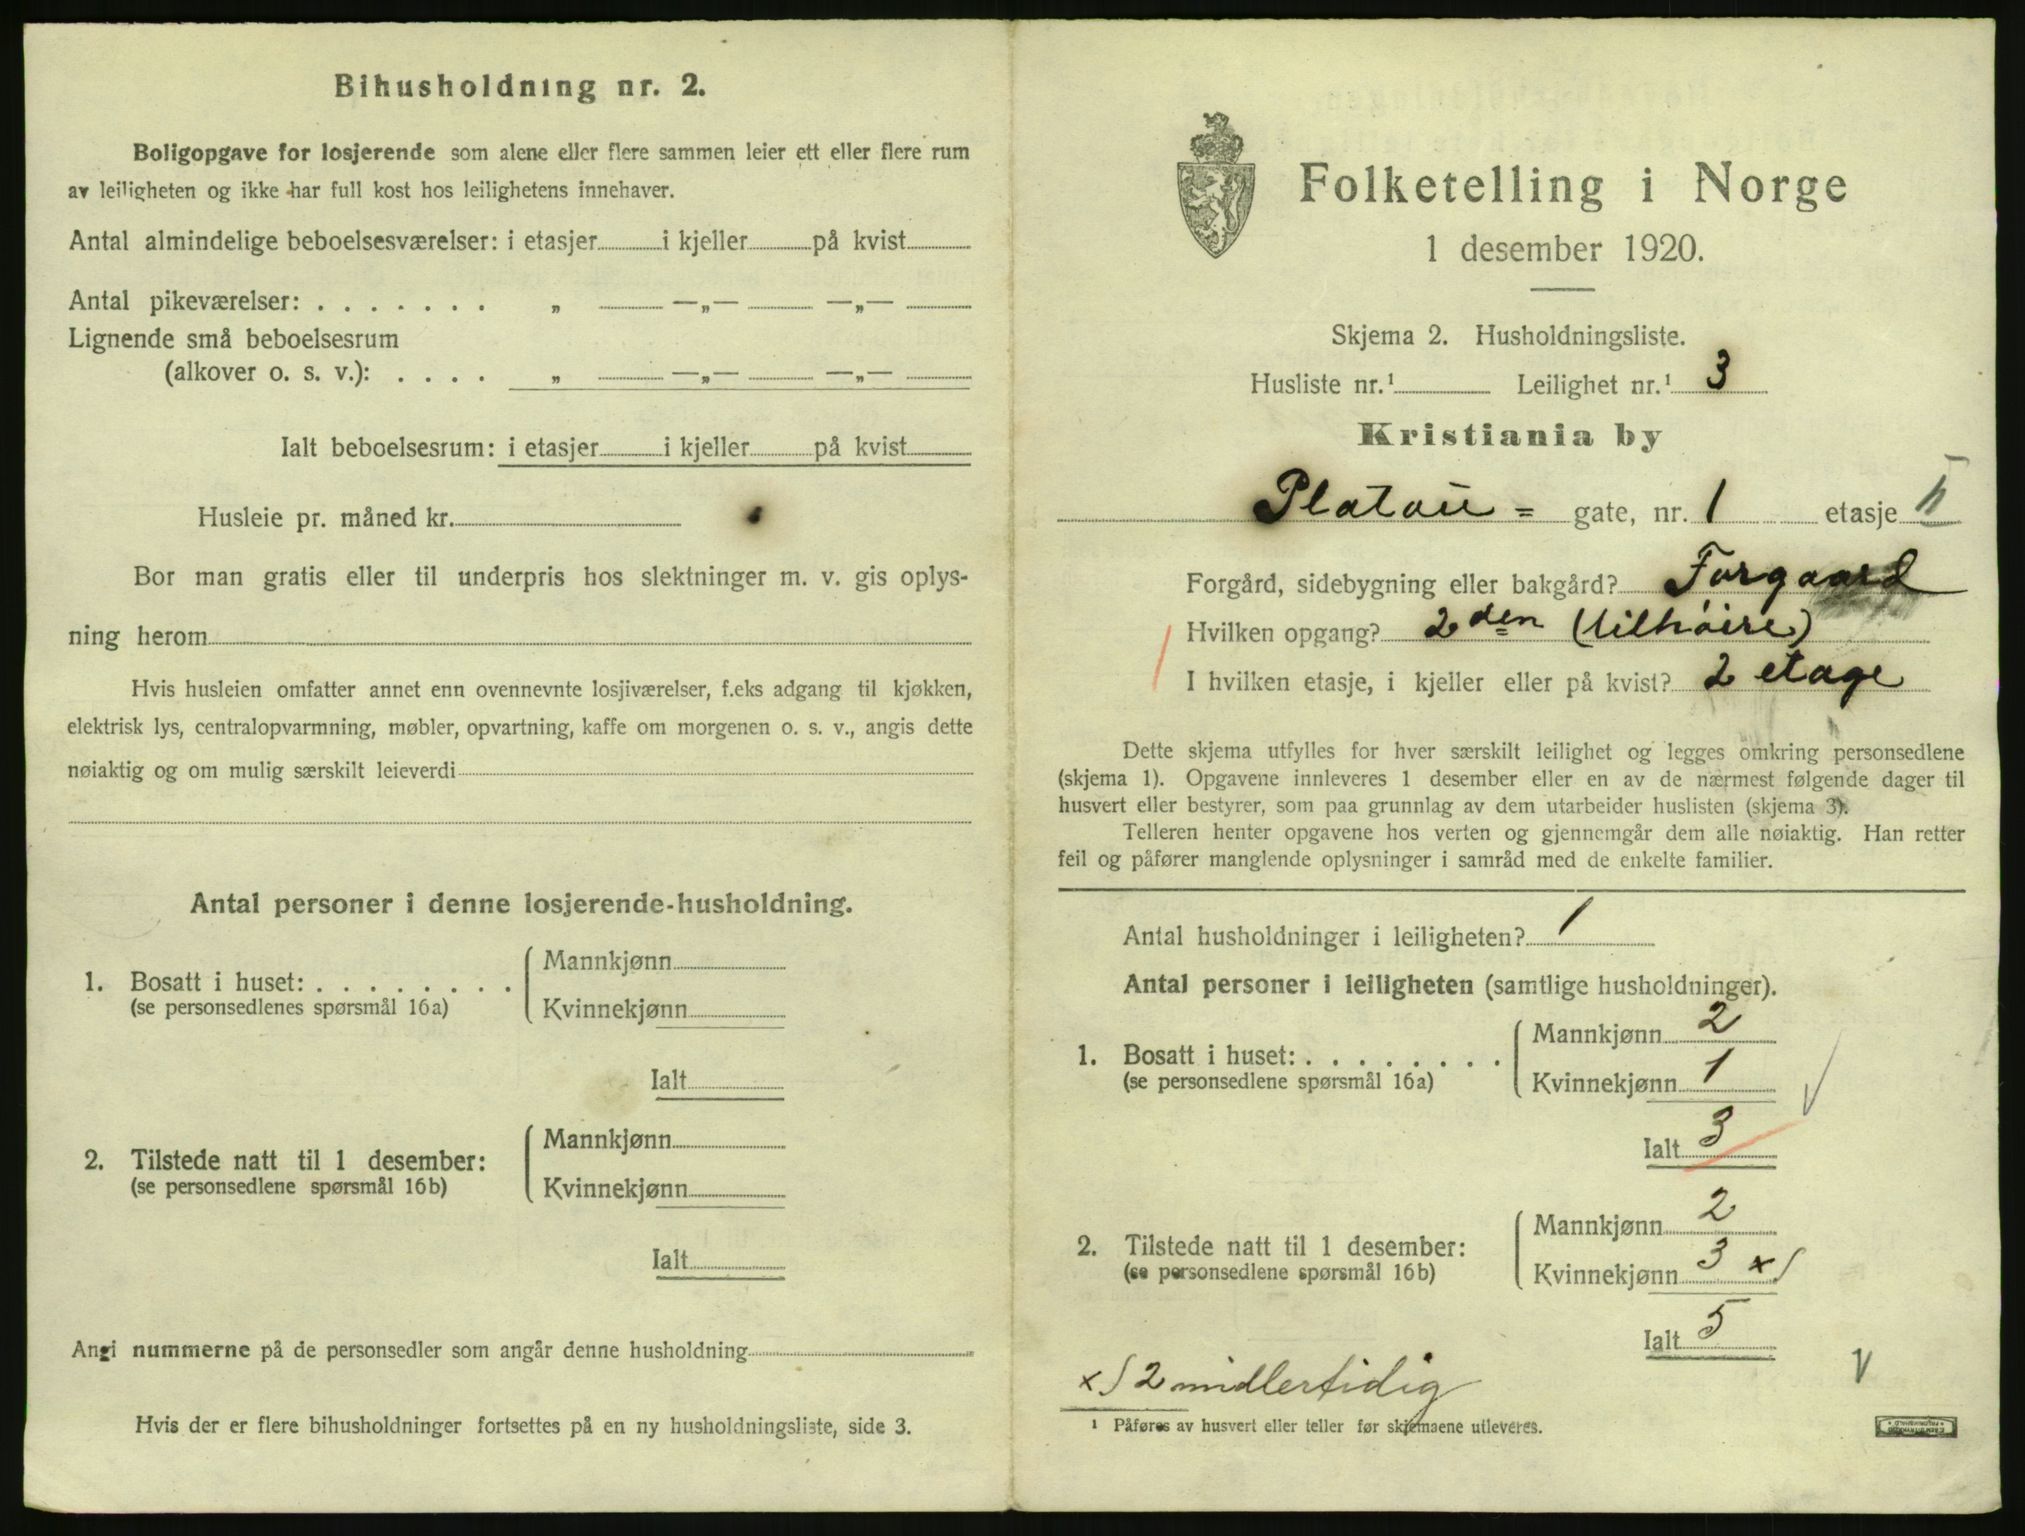 Bihusholdning nr. 2.
Boligopgave for losjerende som alene eller flere sammen leier ett eller flere rum
av leiligheten og ikke har full kost hos leilighetens innehaver.
Antal almindelige beboelsesværelser: i etasjer i kjeller på kvist
Antal pikeværelser: . . . . . . . „ —„— —„—
Lignende små beboelsesrum
(alkover o. s. v.): . . . . „ —„— —„—
Ialt beboelsesrum: i etasjer i kjeller på kvist
Husleie pr. måned kr.
Bor man gratis eller til underpris hos slektninger m. v. gis oplys-
ning herom
Hvis husleien omfatter annet enn ovennevnte losjiværelser, f.eks adgang til kjøkken,
elektrisk lys, centralopvarmning, møbler, opvartning, kaffe om morgenen o. s. v., angis dette
nøiaktig og om mulig særskilt leieverdi
Antal personer i denne losjerende-husholdning.
1. Bosatt i huset: . . . . . . . .
(se personsedlenes spørsmål 16a)
Mannkjønn
Kvinnekjønn
Ialt
2. Tilstede natt til 1 desember:
(se personsedlene spørsmål 16b)
Mannkjønn
Kvinnekjønn
Ialt
Angi nummerne på de personsedler som angår denne husholdning
Hvis der er flere bihusholdninger fortsettes på en ny husholdningsliste, side 3.
Folketelling i Norge
1 desember 1920.
Skjema 2. Husholdningsliste.
Husliste nr.¹ Leilighet nr.¹ 3
Kristiania by
Platou = gate, nr. 1 etasje II
Forgård, sidebygning eller bakgård? Forgaard
Hvilken opgang? 2den (tilhøire)
I hvilken etasje, i kjeller eller på kvist? 2 etage
Dette skjema utfylles for hver særskilt leilighet og legges omkring personsedlene
(skjema 1). Opgavene innleveres 1 desember eller en av de nærmest følgende dager til
husvert eller bestyrer, som paa grunnlag av dem utarbeider huslisten (skjema 3).
Telleren henter opgavene hos verten og gjennemgår dem alle nøiaktig. Han retter
feil og påfører manglende oplysninger i samråd med de enkelte familier.
Antal husholdninger i leiligheten? 1
Antal personer i leiligheten (samtlige husholdninger).
1. Bosatt i huset: . . . . . . . .
(se personsedlene spørsmål 16a)
Mannkjønn 2
Kvinnekjønn 1
Ialt 3
2. Tilstede natt til 1 desember:
(se personsedlene spørsmål 16b)
Mannkjønn 2
Kvinnekjønn 3 x/
Ialt 5
x/ 2 midlertidig
¹ Påføres av husvert eller teller før skjemaene utleveres.